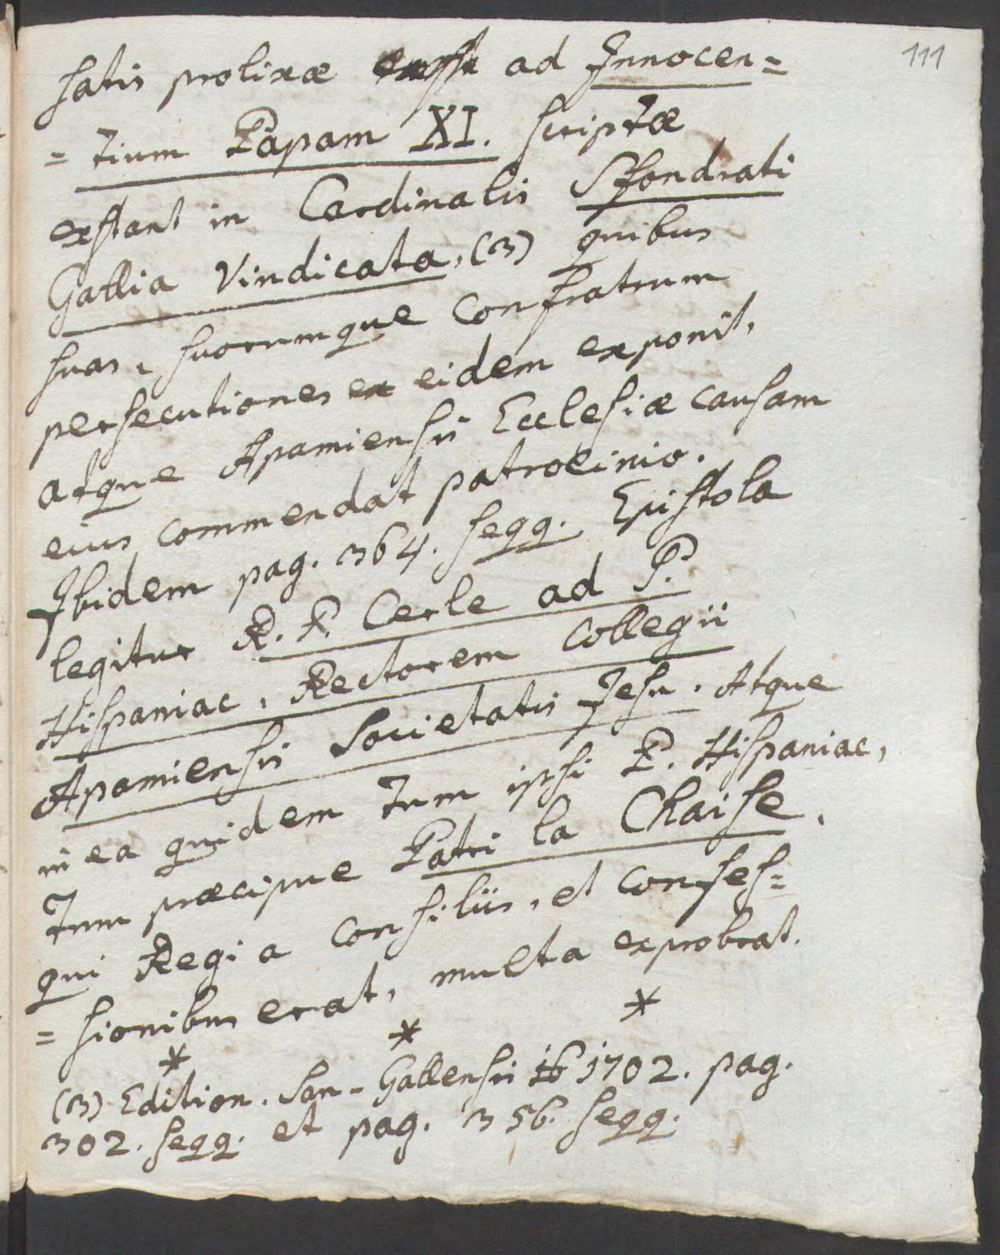 111
satis prolixæ ad Innocen=
= tium Papam XI. scriptæ
exstant in Cardinalis Sfondrati
Gallia Vindicata, (3) quibus
suas, suorumque Confratrum
persecutiones ex eidem exponit,
atque Apamiensis Ecclesiæ causam
eius commendat patrocinio.
Ibidem pag. 364. seqq. Epistola
legitur R. P. Cerle ad P.
Hispaniac, Rectorem Collegii
Apamiensis Societatis Jesu. Atque
in ea quidem tum ipsi P. Hispaniac,
tum præcipue Patri la Chaise,
qui Regi a consiliis, et confes=
= sionibus erat, multa exprobrat.
* * *
(3) Edition. San-Gallensis 1702. pag.
302. seqq. et pag. 356. seqq.